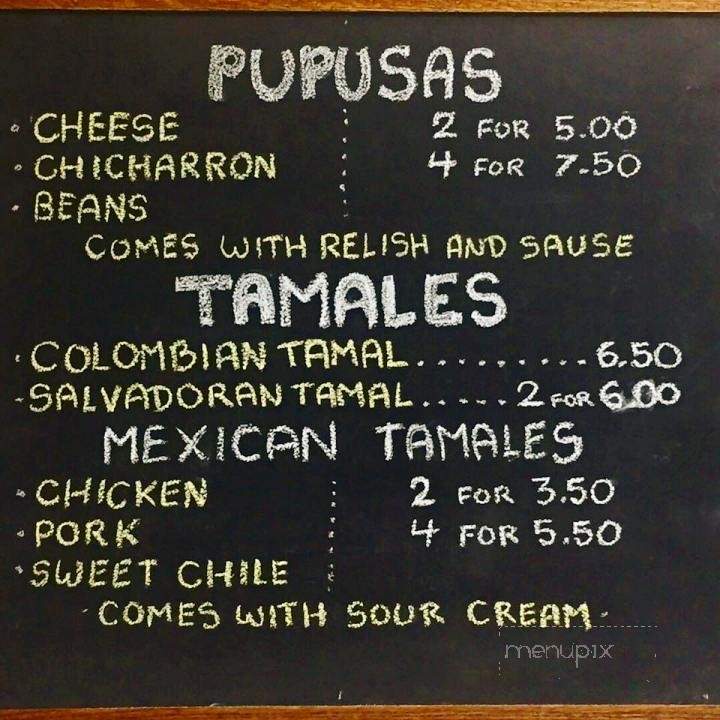 PUPUSAS
· CHEESE 2 FOR 5.00
· CHICHARRON 4 FOR 7.50
· BEANS
COMES WITH RELISH AND SAUSE
TAMALES
· COLOMBIAN TAMAL.......... 6.50
- SALVADORAN TAMAL..... 2 FOR 6.00
MEXICAN TAMALES
· CHICKEN 2 FOR 3.50
· PORK 4 FOR 5.50
· SWEET CHILE
· COMES WITH SOUR CREAM ·
menupix